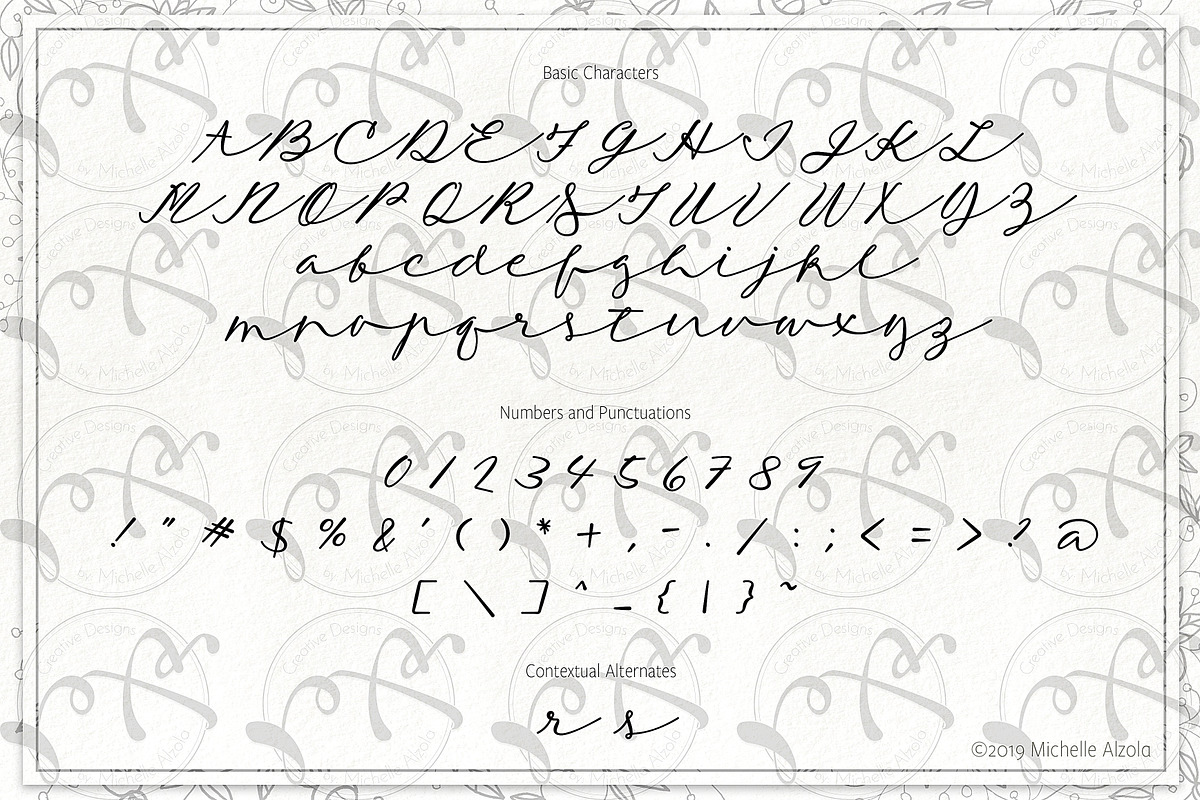 Basic Characters
A B C D E F G H I J K L
M N O P Q R S T U V W X Y Z
a b c d e f g h i j k l
m n o p q r s t u v w x y z
Numbers and Punctuations
0 1 2 3 4 5 6 7 8 9
! " # $ % & ' ( ) * + , - . / : ; < = > ? @
[ \ ] ^ _ { | } ~
Contextual Alternates
r s
©2019 Michelle Alzola
Creative Designs
by Michelle Alzola